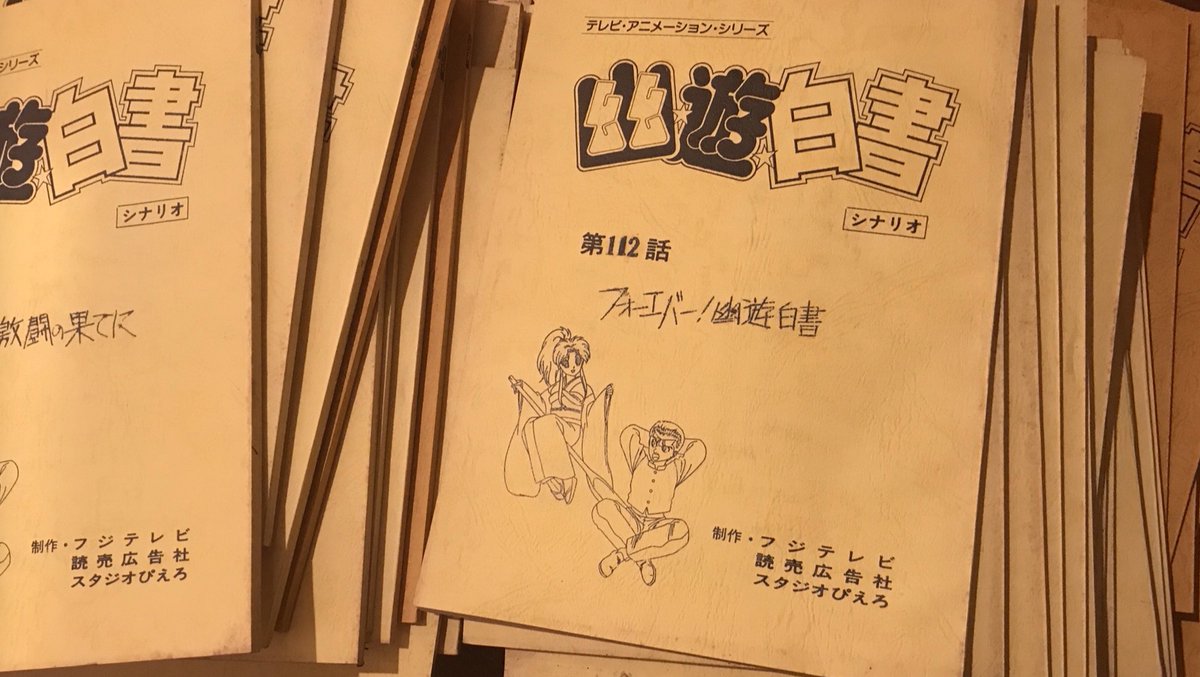 シリーズ
遊白書
シナリオ
激闘の果てに
制作・フジテレビ
読売広告社
スタジオぴえろ
テレビ・アニメーション・シリーズ
幽遊白書
シナリオ
第112話
フォーエバー!幽遊白書
制作・フジテレビ
読売広告社
スタジオぴえろ